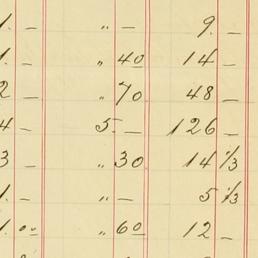 1. — " — 9. —
1. — " 40 14 —
2 — " 70 48 —
4 — 5. — 126 —
3 — " 30 14 1/3
1. — " — 5 1/3
1. 00 " 60 12 —